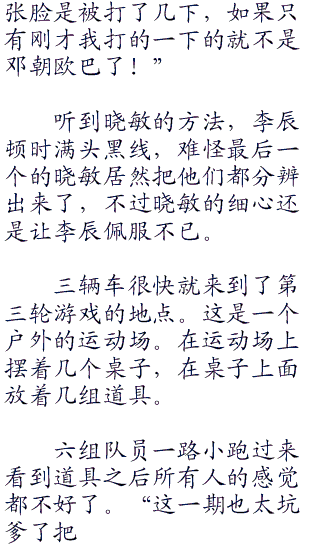 张脸是被打了几下，如果只
有刚才我打的一下的就不是
邓朝欧巴了！”
听到晓敏的方法，李辰
顿时满头黑线，难怪最后一
个的晓敏居然把他们都分辨
出来了，不过晓敏的细心还
是让李辰佩服不已。
三辆车很快就来到了第
三轮游戏的地点。这是一个
户外的运动场。在运动场上
摆着几个桌子，在桌子上面
放着几组道具。
六组队员一路小跑过来
看到道具之后所有人的感觉
都不好了。“这一期也太坑
爹了把